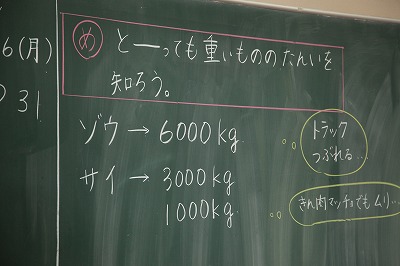 6(月)
31
め と――っても重いもののたんいを
知ろう。
ゾウ→6000kg
トラック
つぶれる…
サイ→3000kg
1000kg
きん肉マッチョでもムリ…